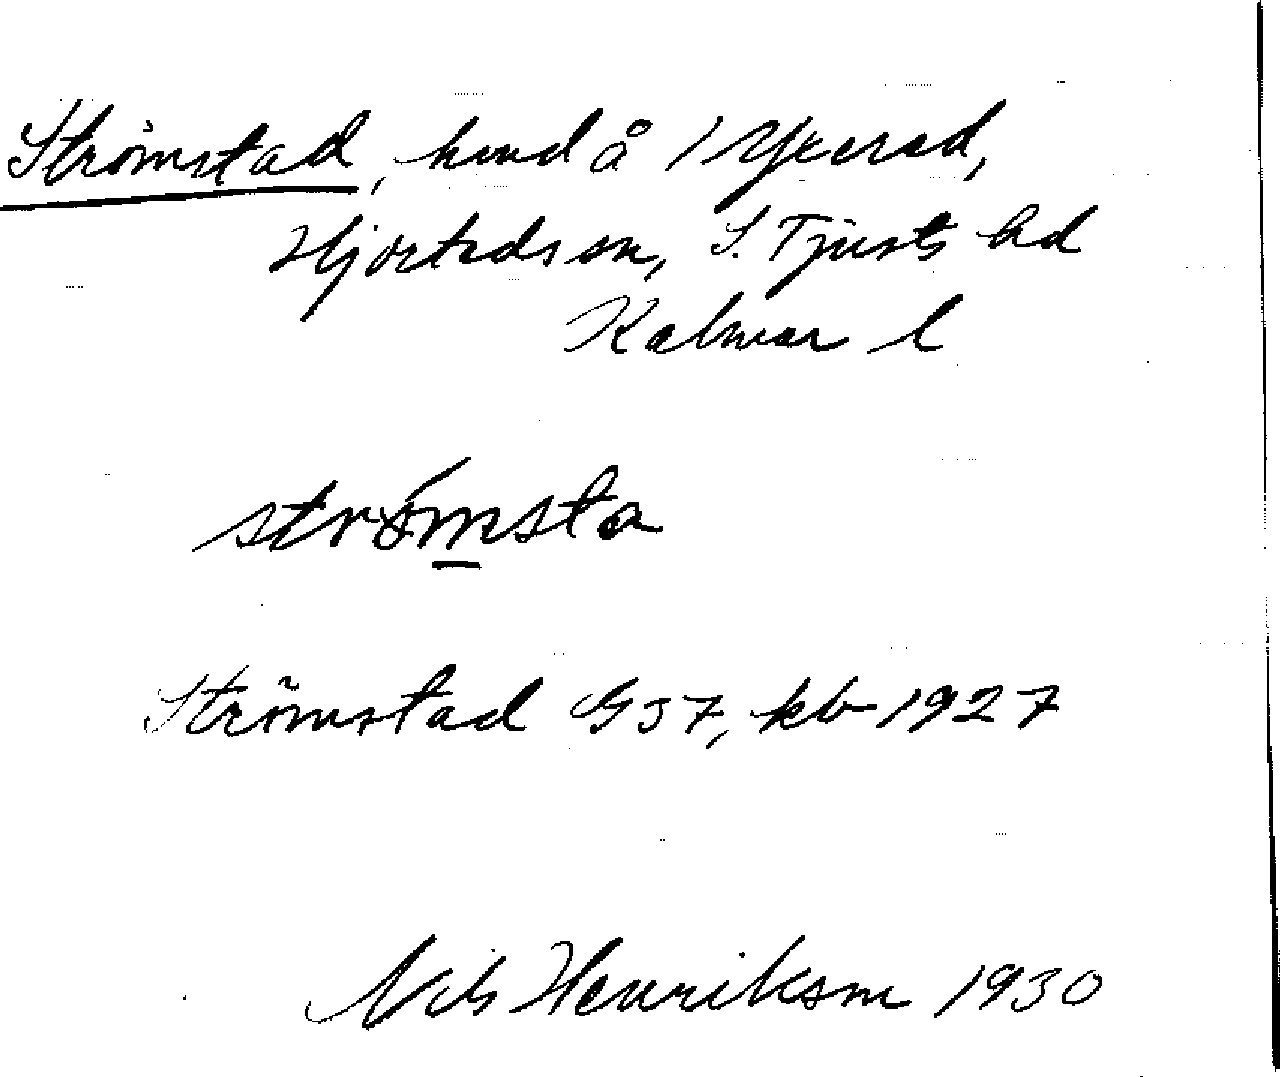 Strömstad, hmd å 1 Ykerad,
Hjorteds sn, S. Tjusts hd
Kalmar l
strømsta
Strömstad G57, kb 1927
Nils Henriksson 1930